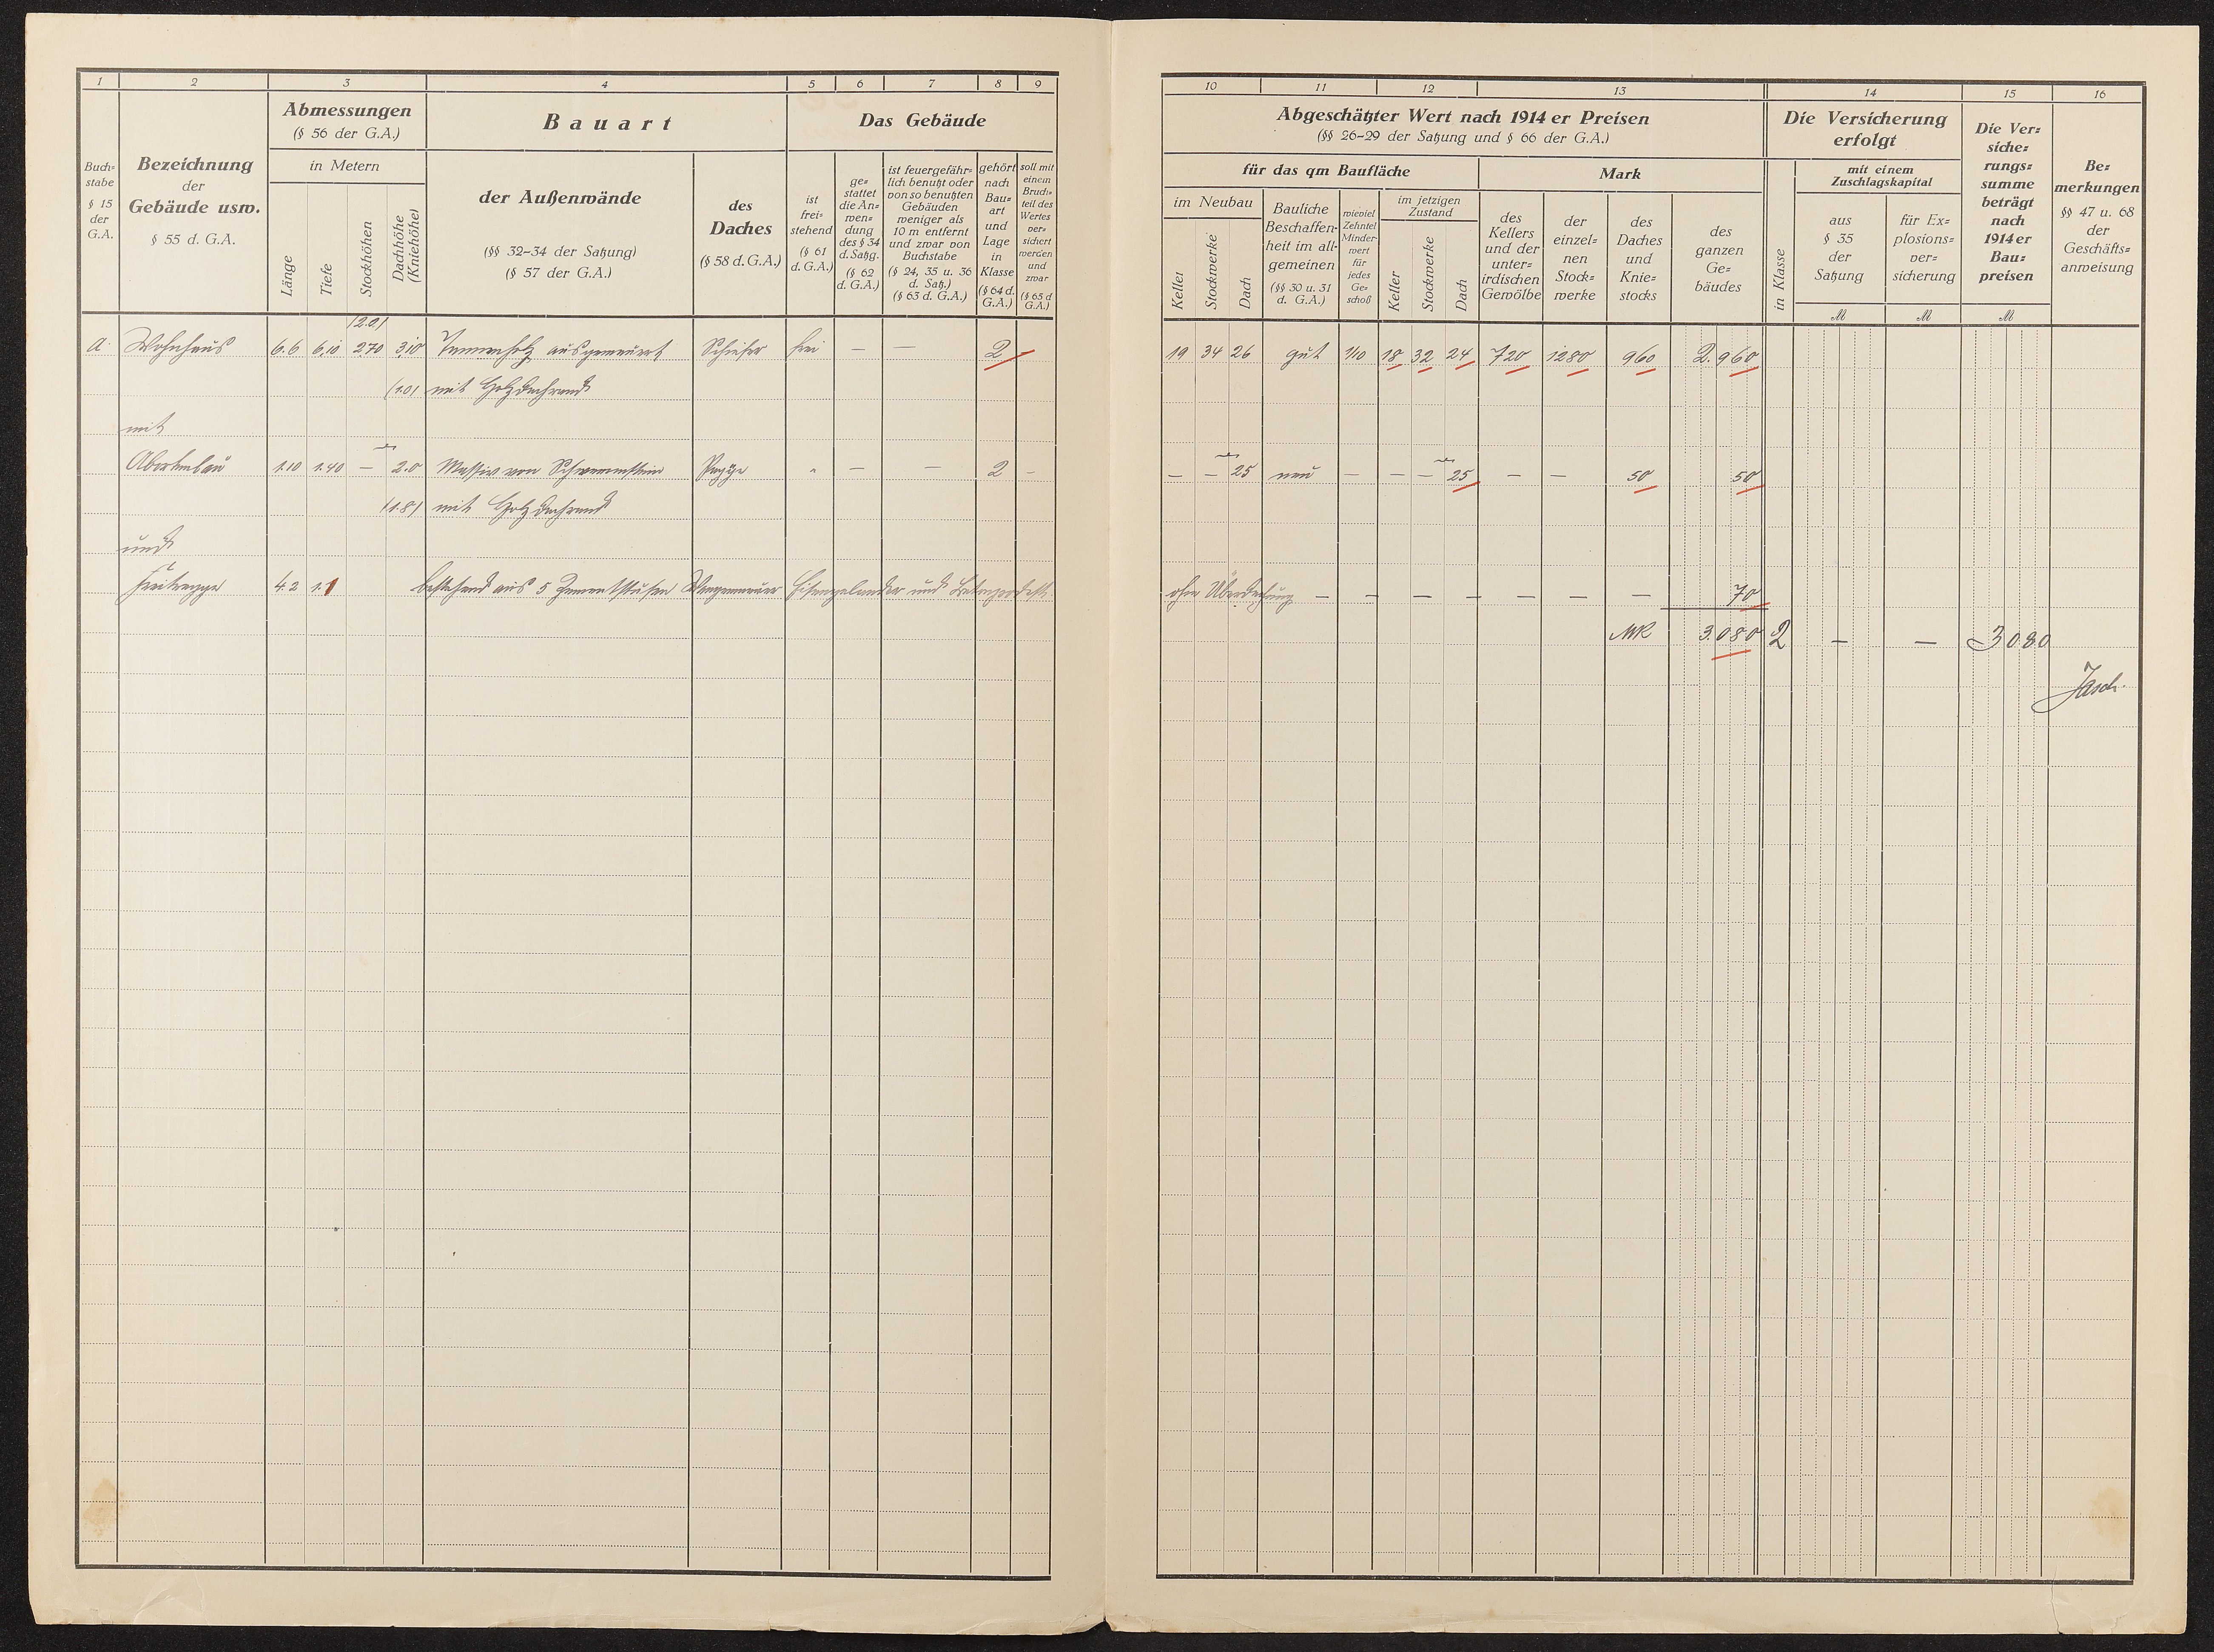 1 2 3 4 5 6 7 8 9
Buch=
stabe
§ 15
der
G.A.
Bezeichnung
der
Gebäude usw.
§ 55 d. G.A.
Abmessungen
(§ 56 der G.A.)
in Metern
Länge
Tiefe
Stockhöhen
Dachhöhe
(Kniehöhe)
Bauart
der Außenwände
(§§ 32-34 der Satzung)
(§ 57 der G.A.)
des
Daches
(§ 58 d. G.A.)
Das Gebäude
ist
frei=
stehend
(§ 61
d. G.A.)
ge=
stattet
die An=
wen=
dung
des § 34
d. Satzg.
(§ 62
d. G.A.)
ist feuergefähr=
lich benutzt oder
von so benutzten
Gebäuden
weniger als
10 m entfernt
und zwar von
Buchstabe
(§ 24, 35 u. 36
d. Satz.)
(§ 63 d. G.A.)
gehört
nach
Bau=
art
und
Lage
in
Klasse
(§ 64 d.
G.A.)
soll mit
einem
Bruch=
teil des
Wertes
ver=
sichert
werden
und
zwar
(§ 65 d
G.A.)
(2.0)
A. Wohnhaus 6.6 6,10 2,70 3,10 Tannenholz ausgemauert Schiefer frei — — 2
(1.0) mit Holzdachrand
mit
Abortanbau 1.10 1.40 — 2.0 Massiv von Schwemmstein Pappe " — — 2 –
(1.8) mit Holzdachrand
und
Freitreppe 4.2 1.1 bestehend aus 5 Zementstufen Wangenmauer Eisengeländer und Betonpodest
10 11 12 13 14 15 16
Abgeschätzter Wert nach 1914 er Preisen
(§§ 26-29 der Satzung und § 66 der G.A.)
für das qm Baufläche
im Neubau
Keller
Stockwerke
Dach
Bauliche
Beschaffen=
heit im all=
gemeinen
(§§ 30 u. 31
d. G.A.)
wieviel
Zehntel
Minder=
wert
für
jedes
Ge=
schoß
im jetzigen
Zustand
Keller
Stockwerke
Dach
Mark
des
Kellers
und der
unter=
irdischen
Gewölbe
der
einzel=
nen
Stock=
werke
des
Daches
und
Knie=
stocks
des
ganzen
Ge=
bäudes
Die Versicherung
erfolgt
in Klasse
mit einem
Zuschlagskapital
aus
§ 35
der
Satzung
für Ex=
plosions=
ver=
sicherung
Die Ver=
siche=
rungs=
summe
beträgt
nach
1914 er
Bau=
preisen
Be=
merkungen
§§ 47 u. 68
der
Geschäfts=
anweisung
M M M
19 34 26 gut 1/10 18 32 24 720 1280 960 2.960
— — 25 neu — — — 25 — — 50 50
ohne Überdachung — — — — — — — — 70
MK 3.080 2 — — 3080
Jäsch.